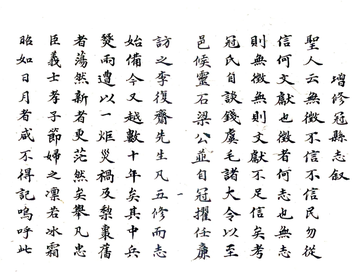 增修冠縣志叙
聖人云無徵不信不信民勿從
信何文獻也徵者何志也無志
則無徵無則文獻不足信矣考
冠氏自談錢虞毛諸大令以至
邑候靈石梁公並自冠擢任廉
訪之李復齋先生凡五修而志
始備今又越數十年矣其中兵
燹而遭以一炬災禍及梨棗舊
者蕩然新者更茫然矣舉凡忠
臣義士孝子節婦之凛若冰霜
昭如日月者咸不得記嗚呼此